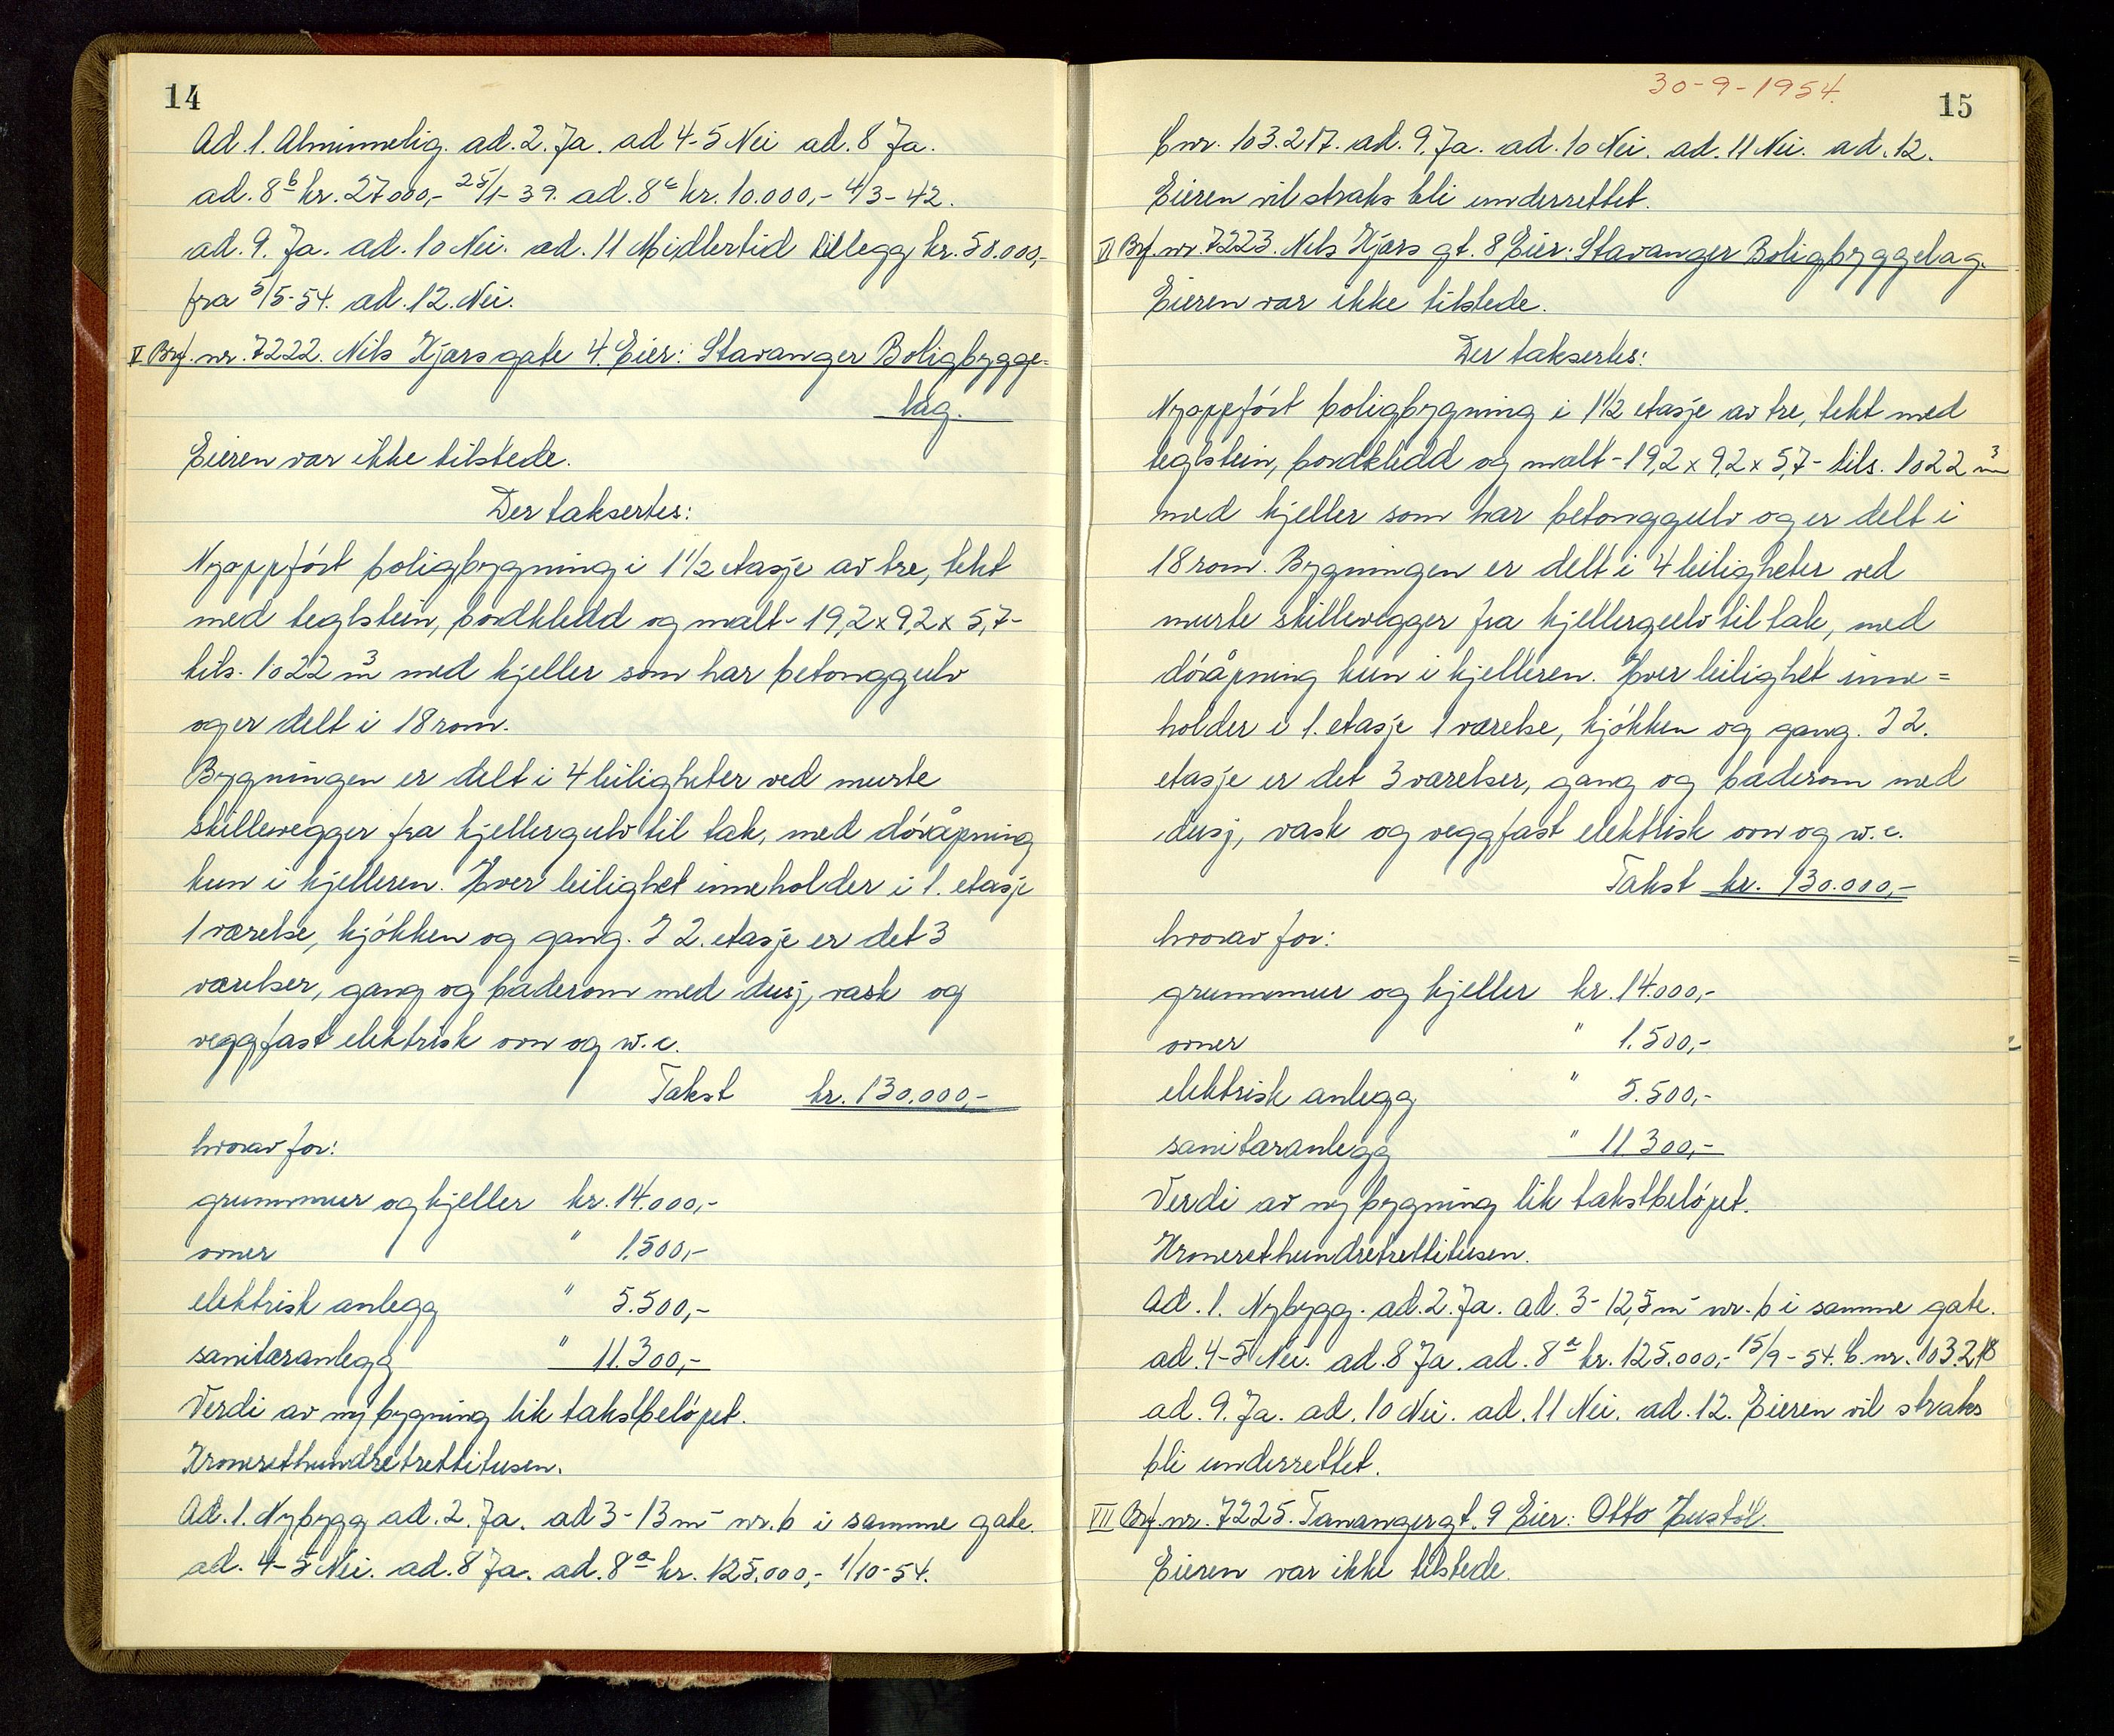 14
Ad 1. Alminnelig. ad. 2. Ja. ad 4-5 Nei ad. 8 Ja.
ad. 8b kr. 27000,- 25/1-39. ad. 8c kr. 10.000,- 4/3-42.
ad. 9. Ja. ad. 10 Nei. ad. 11 Midlertid tillegg kr. 58.000,-
fra 5/5-54. ad. 12. Nei.
V Brf. nr. 7222. Nils Kjærs gate 4. Eier: Stavanger Boligbygge=
lag.
Eieren var ikke tilstede.
Der taksertes:
Nyoppført boligbygning i 1 1/2 etasje av tre, tekt
med teglstein, bordkledd og malt - 19,2 x 9,2 x 5,7 -
tils. 1022 m3 med kjeller som har betonggulv
og er delt i 18 rom.
Bygningen er delt i 4 leiligheter ved murte
skillevegger fra kjellergulv til tak, med døråpning
kun i kjelleren. Hver leilighet inneholder i 1. etasje
1 værelse, kjøkken og gang. I 2. etasje er det 3
værelser, gang og baderom med dusj, vask og
veggfast elektrisk ovn og w.c.
Takst kr. 130.000,-
hvorav for:
grunnmur og kjeller kr. 14.000,-
ovner " 1.500,-
elektrisk anlegg " 5.500,-
sanitæranlegg " 11.300,-
Verdi av ny bygning lik takstbeløpet.
Kronerethundretrettitusen.
Ad. 1. Nybygg ad. 2. Ja. ad 3 - 13 m - nr. 6 i samme gate.
ad. 4-5 Nei. ad. 8 Ja. ad. 8a kr. 125.000,- 1/10-54.
30-9-1954.
15
C nr. 103.217. ad. 9. Ja. ad. 10 Nei. ad. 11 Nei. ad. 12.
Eieren vil straks bli underrettet.
VI Brf. nr. 7223. Nils Kjærs gt. 8 Eier: Stavanger Boligbyggelag.
Eieren var ikke tilstede.
Der taksertes:
Nyoppført boligbygning i 1 1/2 etasje av tre, tekt med
teglstein, bordkledd og malt - 19,2 x 9,2 x 5,7 - tils. 1022 m3
med kjeller som har betonggulv og er delt i
18 rom. Bygningen er delt i 4 leiligheter ved
murte skillevegger fra kjellergulv til tak, med
døråpning kun i kjelleren. Hver leilighet inne=
holder i 1. etasje 1 værelse, kjøkken og gang. I 2.
etasje er det 3 værelser, gang og baderom med
dusj, vask og veggfast elektrisk ovn og w.c.
Takst kr. 130.000,-
hvorav for:
grunnmur og kjeller kr. 14.000,-
ovner " 1.500,-
elektrisk anlegg " 5.500,-
sanitæranlegg " 11300,-
Verdi av ny bygning lik takstbeløpet.
Kronerethundretrettitusen.
Ad. 1. Nybygg. ad. 2. Ja. ad. 3 - 12,5 m - nr. 6 i samme gate.
ad. 4-5 Nei. ad. 8 Ja. ad. 8a kr. 125.000,- 15/9-54. C. nr. 103.218
ad. 9. Ja. ad. 10 Nei. ad. 11 Nei. ad. 12. Eieren vil straks
bli underrettet.
VII Brf. nr. 7225. Tanangergt. 9 Eier: Otto Hustøl.
Eieren var ikke tilstede.